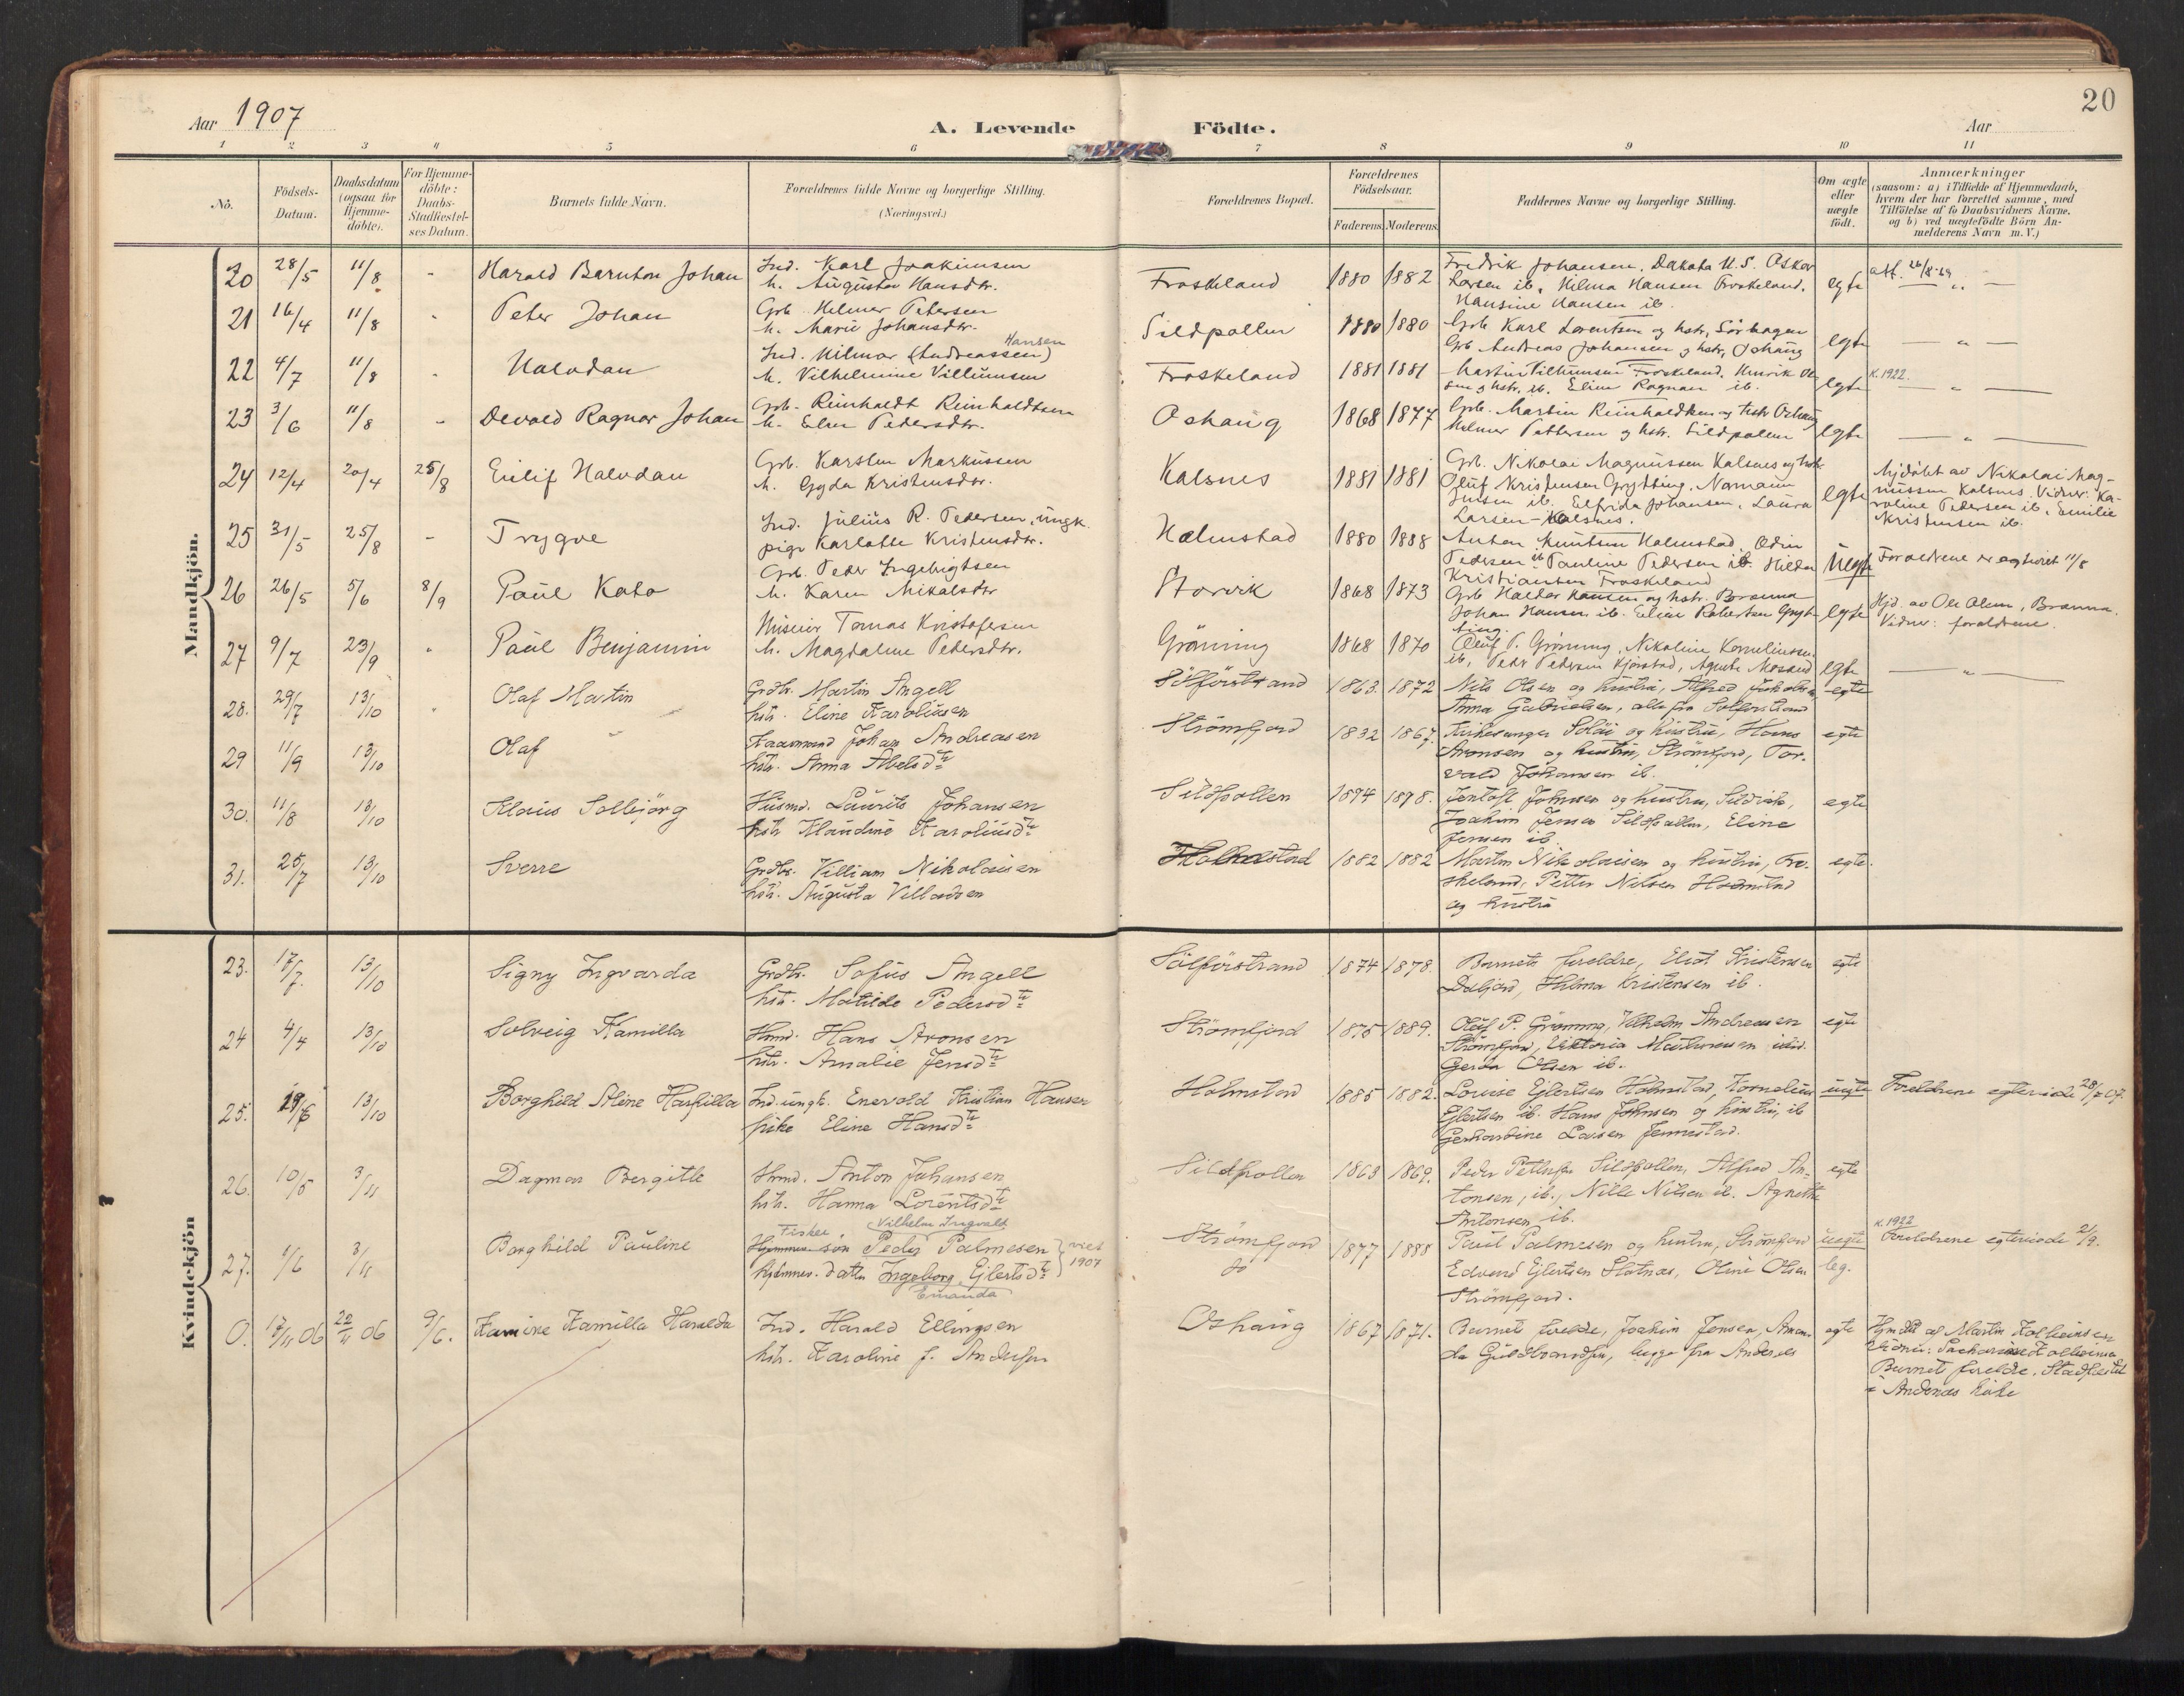 Aar 1907
A. Levende Födte.
Aar
20
1 2 3 4 5 6 7 8 9 10 11
No.
Födsels-Datum.
Daabsdatum (ogsaa for Hjemme-döbte).
For Hjemme-döbte: Daabs-Stadfæstel-ses Datum.
Barnets fulde Navn.
Forældrenes fulde Navne og borgerlige Stilling. (Næringsvei.)
Forældrenes Bopæl.
Forældrenes Födselsaar.
Faderens. Moderens.
Faddernes Navne og borgerlige Stilling.
Om ægte eller uægte födt.
Anmærkninger
(saasom: a) i Tilfælde af Hjemmedaab,
hvem der har forrettet samme, med
Tilföielse af to Daabsvidners Navne,
og b) ved uægtefödte Börn An-
melderens Navn m. V.)
Mandkjön.
20 28/5 11/8 - Harald Barnton Johan
Ind. Karl Joakimsen
h. Augusta Hansdtr.
Froskeland 1880 1882
Fredrik Johansen, Dakota U.S. Oskar
Larsen ib. Hilma Hansen Froskeland,
Hansine Hansen ib.
egte att. 26/8-29 — „ —
21 16/4 11/8 - Peter Johan
Grb. Helmer Petersen
h. Marie Johansdtr.
Sildpollen 1880 1880
Grb. Karl Lorentsen og hstr, Sörhagen
Grb Andreas Johansen og hstr, Oshaug
egte — „ —
22 4/7 11/8 - Halvdan
Ind. Hilmar (Andreassen) Hansen
h. Vilhelmine Villumsen
Froskeland 1881 1881
Martin Villumsen Froskeland. Henrik Ol-
sen og hstr. ib. Eline Ragnar ib.
egte K. 1922. — „ —
23 3/6 11/8 - Devold Ragnar Johan
Grb. Reinholdt Reinholdtsen
h. Elen Pedersdtr.
Oshaug 1868 1877
Grb. Martin Reinholdtsen og hstr Oshaug
Helmer Pettersen og hstr. Sildpollen
egte — „ —
24 12/4 20/4 25/8 Eilif Halvdan
Grb. Karsten Markussen
h. Gyda Kristensdtr.
Kalsnes 1881 1881
Grb. Nikolai Magnussen Kalsnes og hstr
Oluf Kristensen Grytting, Normann
Jensen ib. Elfrida Johansen, Laura
Larsen - Kalsnes.
egte
Hjdöbt av Nikolai Mag-
nussen Kalsnes. Vidner: Ka-
roline Pedersen ib. Emilie
Kristensen ib.
25 31/5 25/8 - Trygve
Ind. Julius R. Pedersen, ungk.
pige Karlotte Kristensdtr.
Holmstad 1880 1888
Anton Knutsen Holmstad. Odin
Pedersen ib Pauline Pedersen ib. Hilda
Kristiansen Froskeland
Uegte Forældrene er egteviet 11/8
26 26/5 5/6 8/9 Paul Kato
Grb. Peder Ingebrigtsen
h. Karen Mikalsdtr
Storvik 1868 1873
Grb Haldor Hansen og hstr. Bremna
Johan Hansen ib. Eline Robertsen Gryt-
ting.
egte
Hjd. av Ole Olsen, Bremna.
Vidner: forældrene.
27 9/7 23/9 - Paul Benjamin
Huseier Tomas Kristofersen
h. Magdalene Pedersdtr.
Gröning 1868 1870
Oluf P. Gröning, Nikoline Kornelinssen
ib, Peder Pedersen Kjörstad, Agnete Mossad
egte — „ —
28. 29/7 13/10 - Olaf Martin
Grdbr. Martin Angell
hstr. Eline Karoliusen
Sölförstrand 1863. 1872
Nils Olsen og hustru, Alfred Jakobsen
Anna Gabrielsen, alle fra Solferstrand
egte
29 11/9 13/10 Olaf
Kaarmand Johan Andreasen
hstr. Anna Abelsdtr
Strömfjord 1832 1867.
Kirkesanger Solöi og hustru, Hans
Aronsen og hustru, Strömfjord, Tor-
vald Johansen ib.
egte
30. 11/8 13/10 Klaus Solbjörg
Husmd. Laurits Johansen
hstr Klaudine Karoliusdtr
Sildpollen 1874 1878.
Jentoft Johnsen og hustru, Sildvik,
Joakim Jensen Sildpollen, Eline
Jensen ib.
egte
31. 25/7 13/10 Sverre
Grdbr. Villiam Nikolaisen
hstr. Augusta Villadsen
Holmstad 1882 1882
Martin Nikolaisen og hustru, Fro-
skeland, Petter Nilsen Holmstad
og hustru
egte.
Kvindekjön
23. 17/7. 13/10 Signy Ingvarda
Grdbr. Sofus Angell
hstr. Matilde Pedersdtr
Sölförstrand 1874 1878.
Barnets foreldre, Eliot Kristensen
Daljord, Hilma Kristensen ib.
egte
24 4/4 13/10 Solveig Kamilla
Husmd. Hans Aronsen
hstr. Amalie Jensdtr
Strömfjord 1875 1889.
Oluf P. Gröning, Vilhelm Andreasen
Strömfjord, Viktoria Mathisensen ibid.
Gerda Olsen ib.
egte
25. 19/6 13/10 Borghild Aline Harfilla
Ind. ungk. Enevold Kristian Hansen
pike Eline Hansdtr
Holmstad 1885 1882.
Lovise Ejlertsen Holmstad, Kornelius
Ejlertsen ib. Hans Johnsen og hustru, ib
Gerhardine Larsen Jennestad.
uegte Foreldrene egteviede 28/7 07.
26. 10/5 3/11 Dagmar Bergitte
Husmd. Anton Johansen
hstr. Hanna Lorentsdtr
Sildpollen 1863 1869.
Peder Pettersen Sildpollen, Alfred An-
tonsen, ib., Nille Nilsen ib. Agnethe
Antonsen ib.
egte
27. 1/6 3/11 Borghild Pauline
Fisker Vilhelm Ingvalt
Hjemmev. sön Peder Palmesen
hjemmev. datter Ingeborg Ejlertsdtr
Emanda
} viet 1907
Strömfjord
do
1877 1888
Paul Palmesen og hustru, Strömfjord
Edvard Ejlertsen Slotnæs, Oline Olsen
Strömfjord.
uegte
leg.
K. 1922
Foreldrene egteviede 2/9.
0. 17/11 06 22/11 06 9/6. Kamine Kamilla Haralda
Ind. Harald Ellingsen
hstr. Karoline f. Andersen
Oshaug 1867 1871.
Barnets foreldre, Joakim Jensen, Aman-
da Guldbrandsen, begge fra Andenæs
egte
Hjmdöbt af Martin Kolbeinsen
Vidner: Sackarias Kolbeinsen
Barnets foreldre. Stadfæstet
i Andenæs kirke